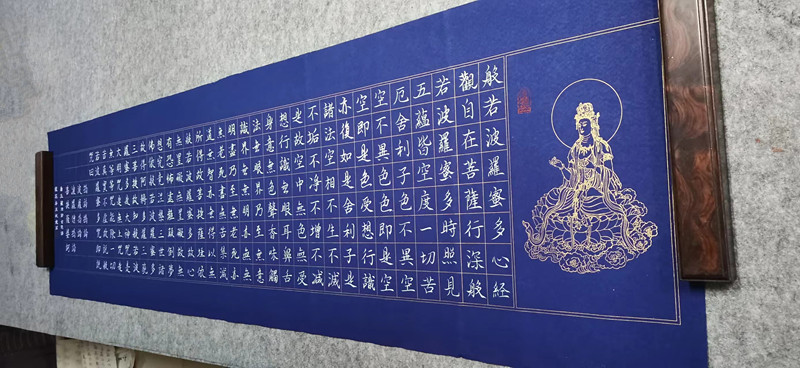 般若波羅蜜多心経
觀自在菩薩行深般
若波羅蜜多時照見
五蘊皆空度一切苦
厄舍利子色不異空
空不異色色即是空
空即是色受想行識
亦復如是舍利子是
諸法空相不生不滅
不垢不淨不增不減
是故空中無色無受
想行識無眼耳鼻舌
身意無色聲香味觸
法無眼界乃至無意
識界無無明亦無無
明盡乃至無老死亦
無老死盡無苦集滅
道無智亦無得以無
所得故菩提薩埵依
般若波羅蜜多故心
無罣礙無罣礙故無
有恐怖遠離顛倒夢
想究竟涅槃三世諸
佛依般若波羅蜜多
故得阿耨多羅三藐
三菩提故知般若波
羅蜜多是大神咒是
大明咒是無上咒是